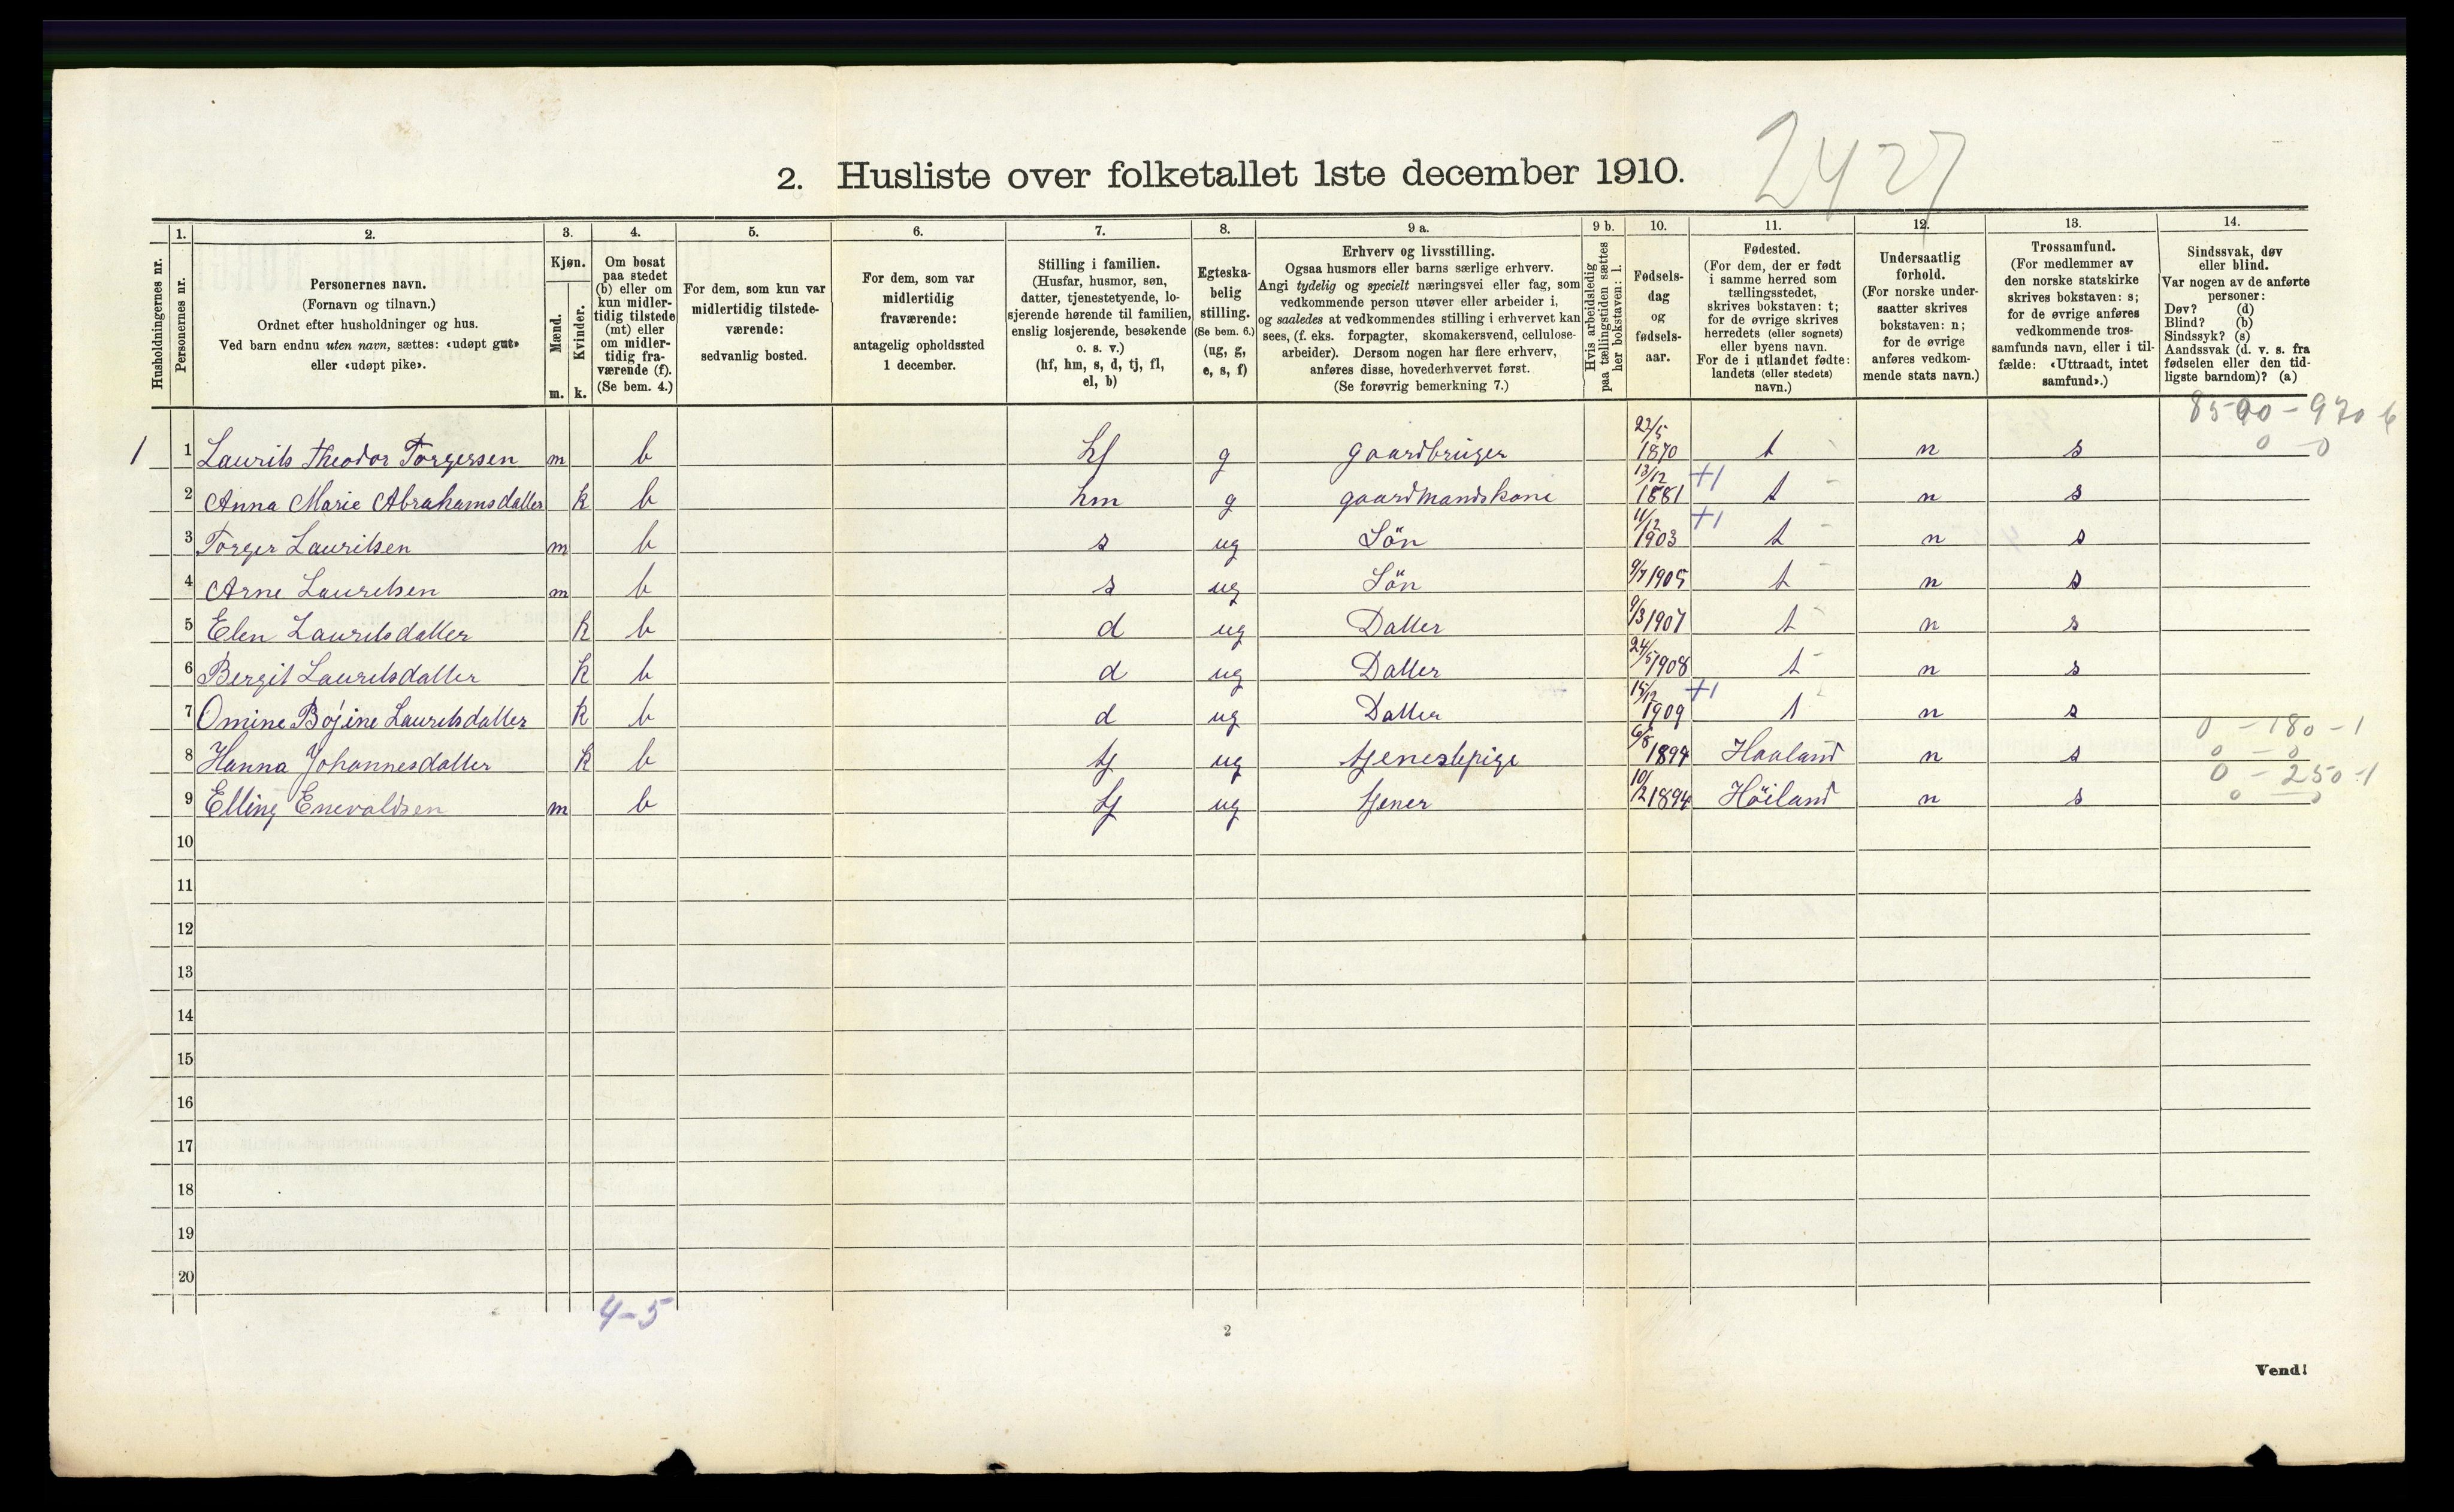 2. Husliste over folketallet 1ste december 1910.
2427
Husholdningernes nr.
1.
Personernes nr.
2.
Personernes navn.
(Fornavn og tilnavn.)
Ordnet efter husholdninger og hus.
Ved barn endnu uten navn, sættes: «udøpt gut»
eller «udøpt pike».
3.
Kjøn.
Mænd.
m.
Kvinder.
k.
4.
Om bosat
paa stedet
(b) eller om
kun midler-
tidig tilstede
(mt) eller
om midler-
tidig fra-
værende (f).
(Se bem. 4.)
5.
For dem, som kun var
midlertidig tilstede-
værende:
sedvanlig bosted.
6.
For dem, som var
midlertidig
fraværende:
antagelig opholdssted
1 december.
7.
Stilling i familien.
(Husfar, husmor, søn,
datter, tjenestetyende, lo-
sjerende hørende til familien,
enslig losjerende, besøkende
o. s. v.)
(hf, hm, s, d, tj, fl,
el, b)
8.
Egteska-
belig
stilling.
(Se bem. 6.)
(ug, g,
e, s, f)
9 a.
Erhverv og livsstilling.
Ogsaa husmors eller barns særlige erhverv.
Angi tydelig og specielt næringsvei eller fag, som
vedkommende person utøver eller arbeider i,
og saaledes at vedkommendes stilling i erhvervet kan
sees, (f. eks. forpagter, skomakersvend, cellulose-
arbeider). Dersom nogen har flere erhverv,
anføres disse, hovederhvervet først.
(Se forøvrig bemerkning 7.)
9 b.
Hvis arbeidsledig
paa tællingstiden sættes
her bokstaven: l.
10.
Fødsels-
dag
og
fødsels-
aar.
11.
Fødested.
(For dem, der er født
i samme herred som
tællingsstedet,
skrives bokstaven: t;
for de øvrige skrives
herredets (eller sognets)
eller byens navn.
For de i utlandet fødte:
landets (eller stedets)
navn.)
12.
Undersaatlig
forhold.
(For norske under-
saatter skrives
bokstaven: n;
for de øvrige
anføres vedkom-
mende stats navn.)
13.
Trossamfund.
(For medlemmer av
den norske statskirke
skrives bokstaven: s;
for de øvrige anføres
vedkommende tros-
samfunds navn, eller i til-
fælde: «Uttraadt, intet
samfund».)
14.
Sindssvak, døv
eller blind.
Var nogen av de anførte
personer:
Døv? (d)
Blind? (b)
Sindssyk? (s)
Aandssvak (d. v. s. fra
fødselen eller den tid-
ligste barndom)? (a)
1 1 Laurits Theodor Torgersen m b hf g gaardbruger 22/5 1870 t n s 0 - 0
2 Anna Marie Abrahamsdatter k b hm g gaardmandskone 13/12 1881 +1 t n s
3 Torger Lauritsen m b s ug Sön 11/12 1903 +1 t n s
4 Arne Lauritsen m b s ug Sön 9/7 1905 t n s
5 Elen Lauritsdatter k b d ug Datter 9/3 1907 t n s
6 Bergit Lauritsdatter k b d ug Datter 24/5 1908 t n s
7 Omine Bojine Lauritsdatter k b d ug Datter 15/12 1909 +1 t n s 0 - 180 - 1
8 Hanna Johannesdatter k b tj ug tjenestepige 6/8 1894 Haaland n s 0 - 0
9 Elling Enevaldsen m b tj ug tjener 10/2 1894 Höiland n s 0 - 250 - 1
0 - 0
10
11
12
13
14
15
16
17
18
19
20
4-5
2
Vend!